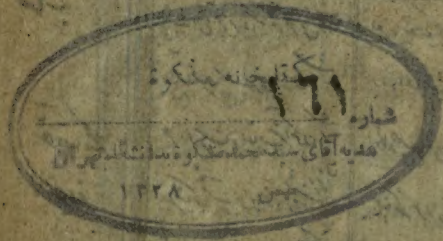 کتابخانه مشکوة
شماره ۱۶۱
هدیه آقای سید محمد مشکوة بدانشگاه تهران
۱۳۲۸